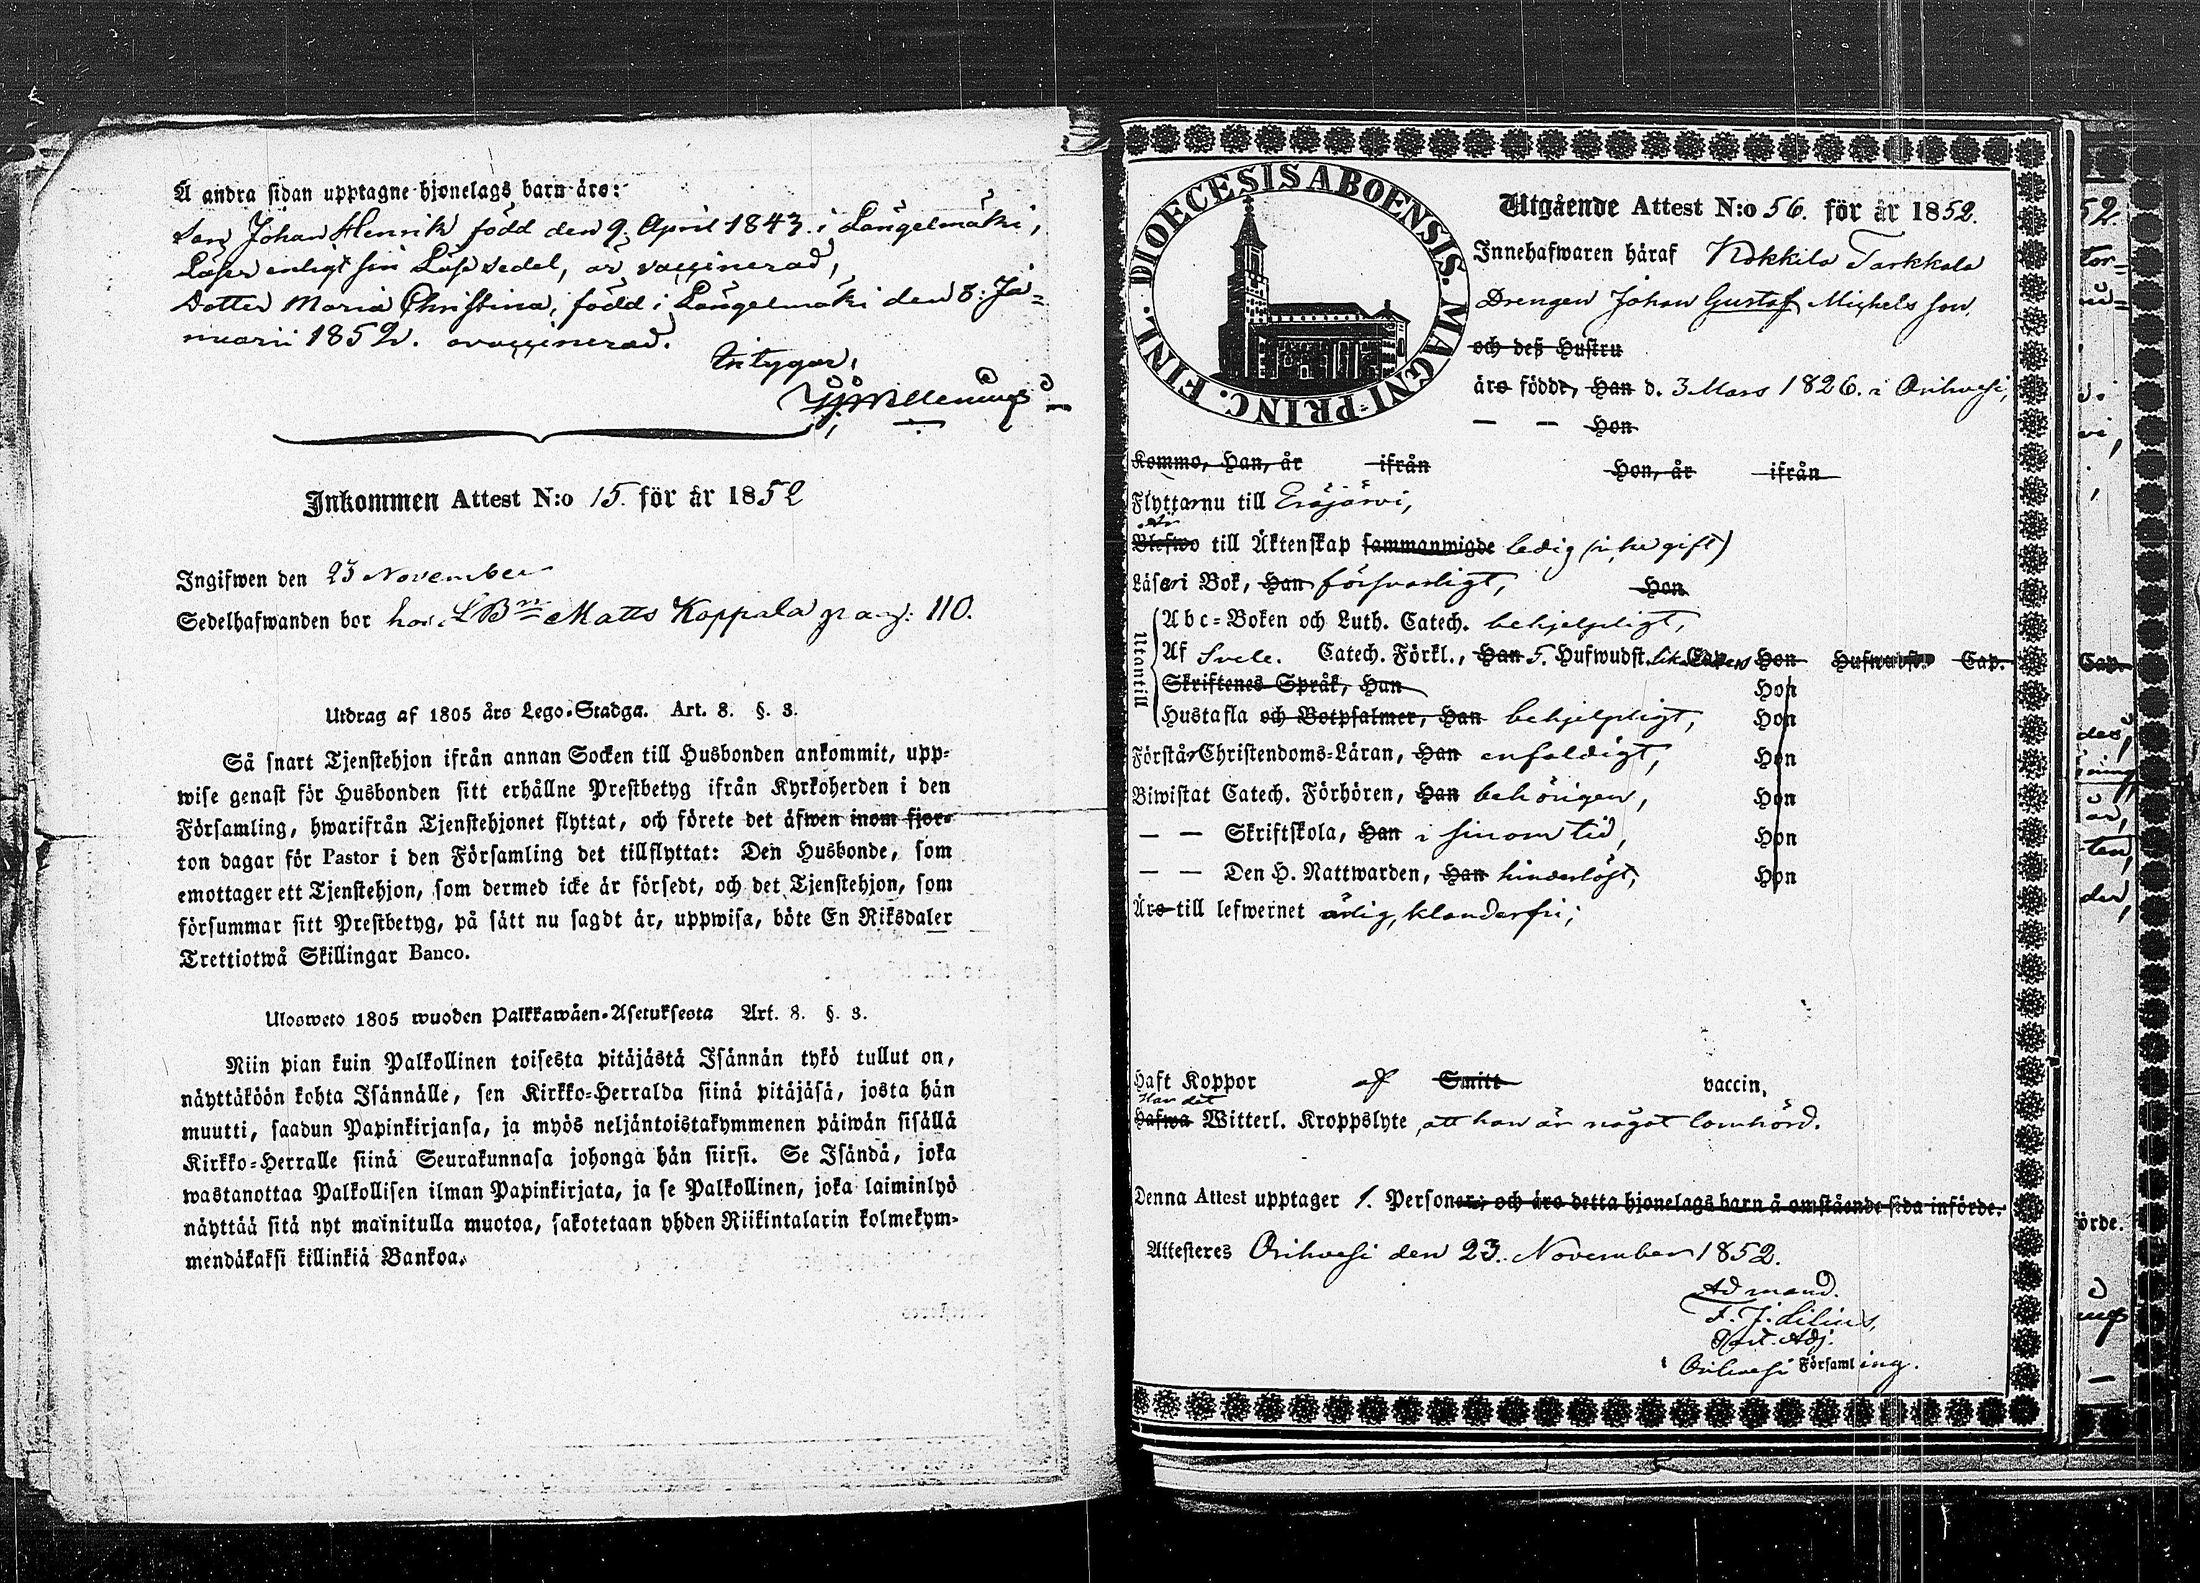 Å andra sidan upptagne hjonelags barn äro:
Son Johan Henrik född den 9. April 1843. i Längelmäki,
Läser enligt sin Läse sedel, är vaccinerad,
Dotter Maria Christina, född i Längelmäki den 8. Ja=
nuarii 1852. ovaccinerad.
Intygar,
Inkommen Attest N:o 15. för år 1852
Ingifwen den 23 November
Sedelhafwanden bor hos LBn Matts Koppala pag: 110.
Utdrag af 1805 års Lego-Stadga. Art. 8. §. 3.
Så snart Tjenstehjon ifrån annan Socken till Husbonden ankommit, upp-
wise genast för Husbonden sitt erhållne Prestbetyg ifrån Kyrkoherden i den
Församling, hwarifrån Tjenstehjonet flyttat, och förete det äfwen inom fjor-
ton dagar för Pastor i den Församling det tillflyttat: Den Husbonde, som
emottager ett Tjenstehjon, som dermed icke är försedt, och det Tjenstehjon, som
försummar sitt Prestbetyg, på sätt nu sagdt är, uppwisa, böte En Riksdaler
Trettiotwå Skillingar Banco.
Ulosweto 1805 wuoden Palkkawäen-Asetuksesta Art. 8. §. 3.
Niin pian kuin Palkollinen toisesta pitäjästä Isännän tykö tullut on,
näyttäköön kohta Isännälle, sen Kirkko-Herralda siinä pitäjäsä, josta hän
muutti, saadun Papinkirjansa, ja myös neljäntoistakymmenen päiwän sisällä
Kirkko-Herralle siinä Seurakunnasa johonga hän siirsi. Se Isändä, joka
wastanottaa Palkollisen ilman Papinkirjata, ja se Palkollinen, joka laiminlyö
näyttää sitä nyt mainitulla muotoa, sakotetaan yhden Riikintalarin kolmekym-
mendäkaksi killinkiä Bankoa.
DIOECESIS ABOENSIS. MAGNI PRINC. FINL.
Utgående Attest N:o 56. för år 1852.
Innehafwaren häraf Kokkila Tarkkala
Drengen Johan Gustaf Michels son
och deß Hustru
äro födde, Han d. 3 Mars 1826. i Orihvesi,
— — Hon
Kommo, Han, år ifrån Hon, år ifrån
Flytta nu till Eräjärvi,
är
Blefwo till Äktenskap sammanwigde ledig (icke gift)
Läsa i Bok, Han försvarligt, Hon
Utantill
Abc-Boken och Luth. Catech. behjelpligt,
Af Svele. Catech. Förkl., Han 5. Hufwudst. Cap. Hon Hufwudst. Cap.
Skriftenes Språk, Han Hon
Hustafla och Botpsalmer, Han behjelpligt, Hon
Förstår Christendoms-Läran, Han enfaldigt, Hon
Biwistat Catech. Förhören, Han behörigen, Hon
— — Skriftskola, Han i sinom tid, Hon
— — Den H. Nattwarden, Han hinderlöst, Hon
Äro till lefwernet ärlig, klanderfri;
Haft Koppor af Smitt vaccin,
Har det
Hafwa Witterl. Kroppslyte, att han är något lomhörd.
Denna Attest upptager 1. Personer; och äro detta hjonelags barn å omstående sida införde.
Attesteres Orihvesi den 23. November 1852.
Ad mand.
F. J. Lilius,
Past. Adj.
i Orihvesi Församling.